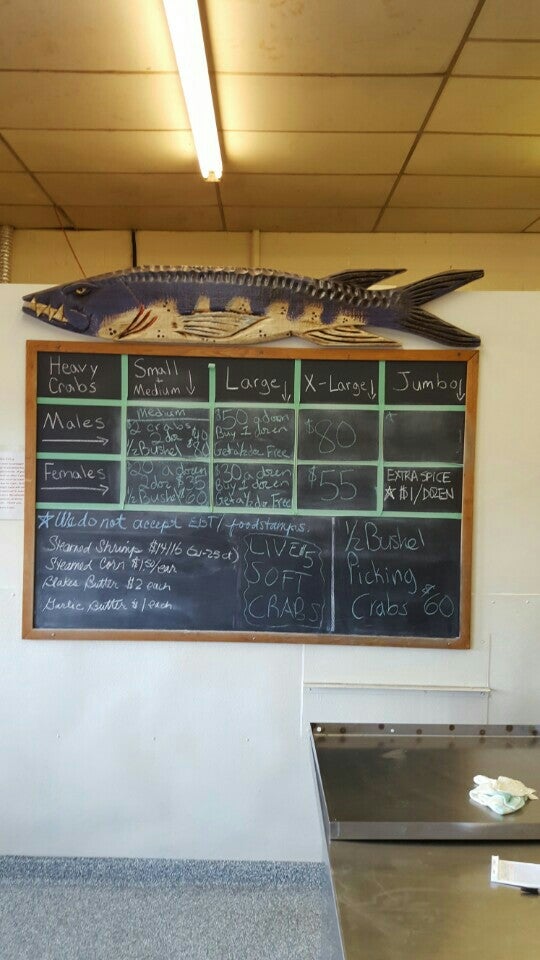 Heavy
Crabs
Small
+
Medium ↓
Large ↓
X-Large ↓
Jumbo ↓
Males
Medium
2 doz $40
1/2 Bushel 80
$50 a dozen
Buy 1 dozen
Get 1/2 doz Free
$80
Females
20 a dozen
2 doz $35
1/2 Bushel $60
$30 a dozen
Buy 1 dozen
Get 1/2 doz Free
$55
EXTRA SPICE
☆ $1/DOZEN
☆ We do not accept EBT/foodstamps.
Steamed Shrimp $14/lb
Steamed Corn $1.50/ear
Blakes Butter $2 each
Garlic Butter $1 each
LIVE $5
SOFT
CRABS
1/2 Bushel
Picking
Crabs $60